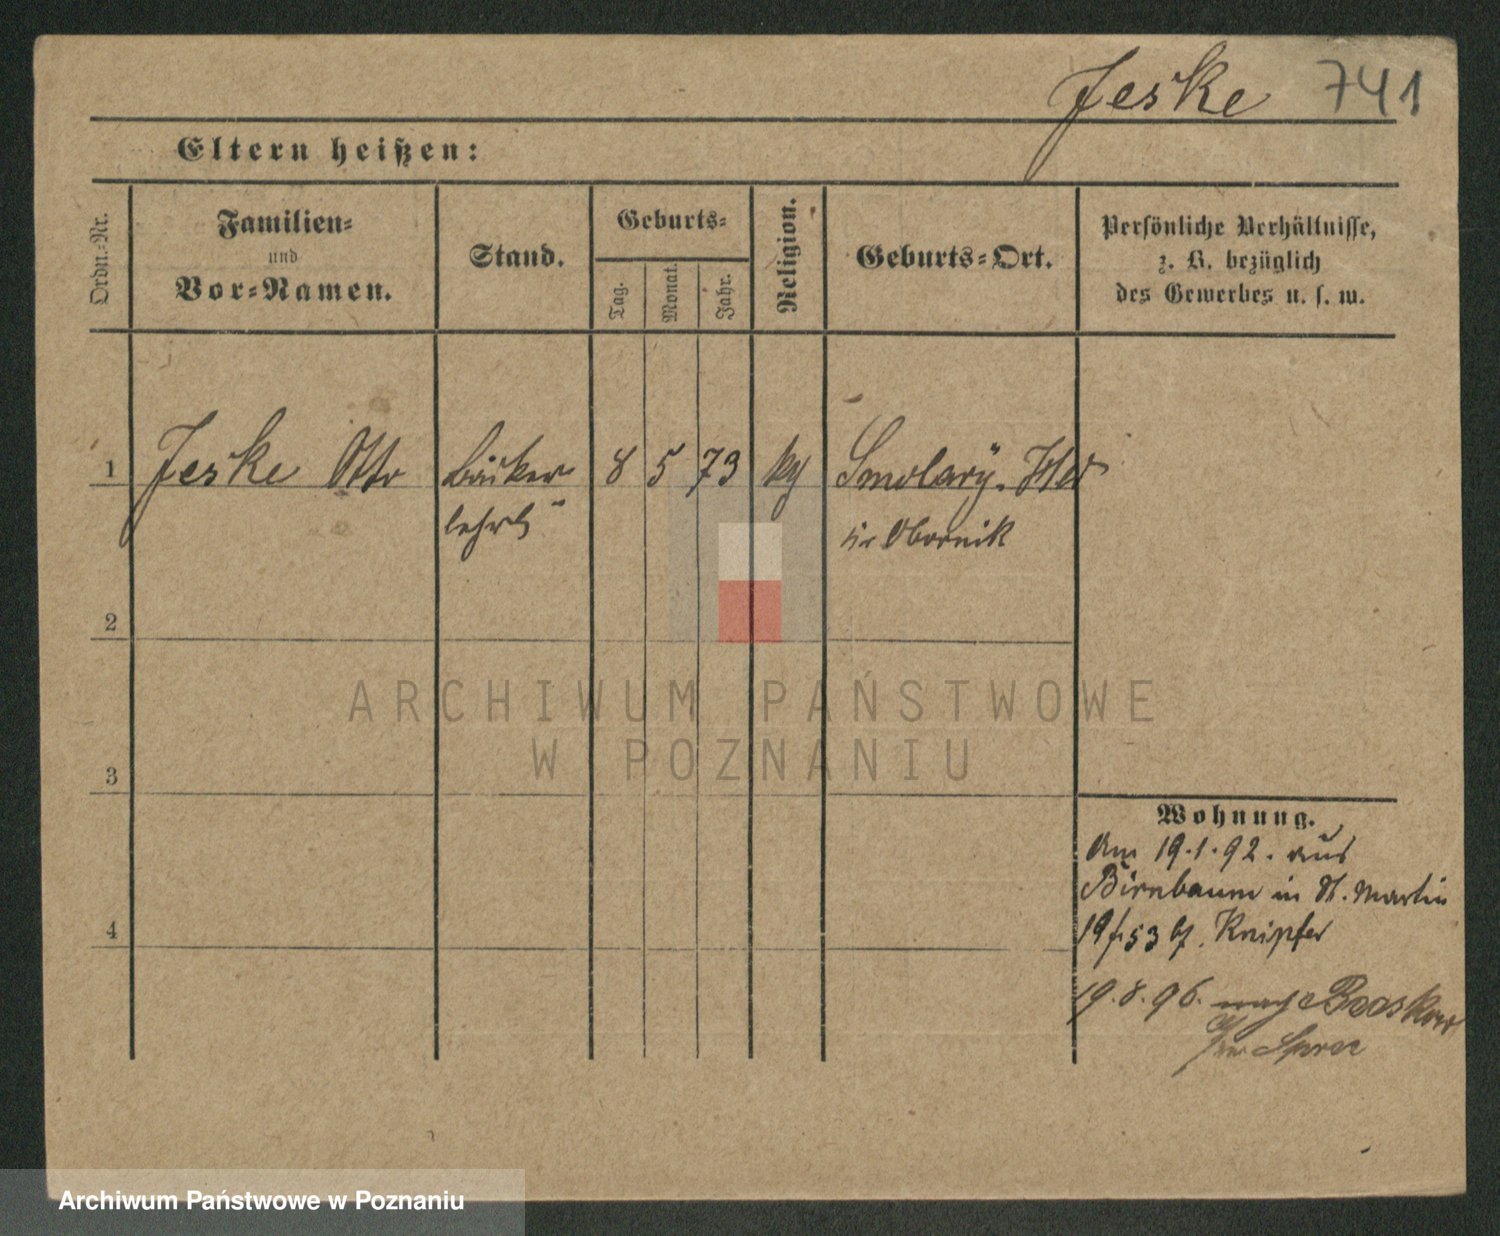 Jeske 741
Eltern heißen:
Ordn.-Nr.
Familien-
und
Vor-Namen.
Stand.
Geburts-
Tag.
Monat.
Jahr.
Religion.
Geburts-Ort.
Persönliche Verhältnisse,
z. B. bezüglich
des Gewerbes u. s. w.
1 Jeske Otto Bäcker 8 5 73 Smolary
lehrl Obornik
2
3
4
Wohnung.
Am 19.1.92. aus
Birnbaum in St. Martin
53 Knipfer
19.8.96. nach
Spree
ARCHIWUM PAŃSTWOWE
W POZNANIU
Archiwum Państwowe w Poznaniu